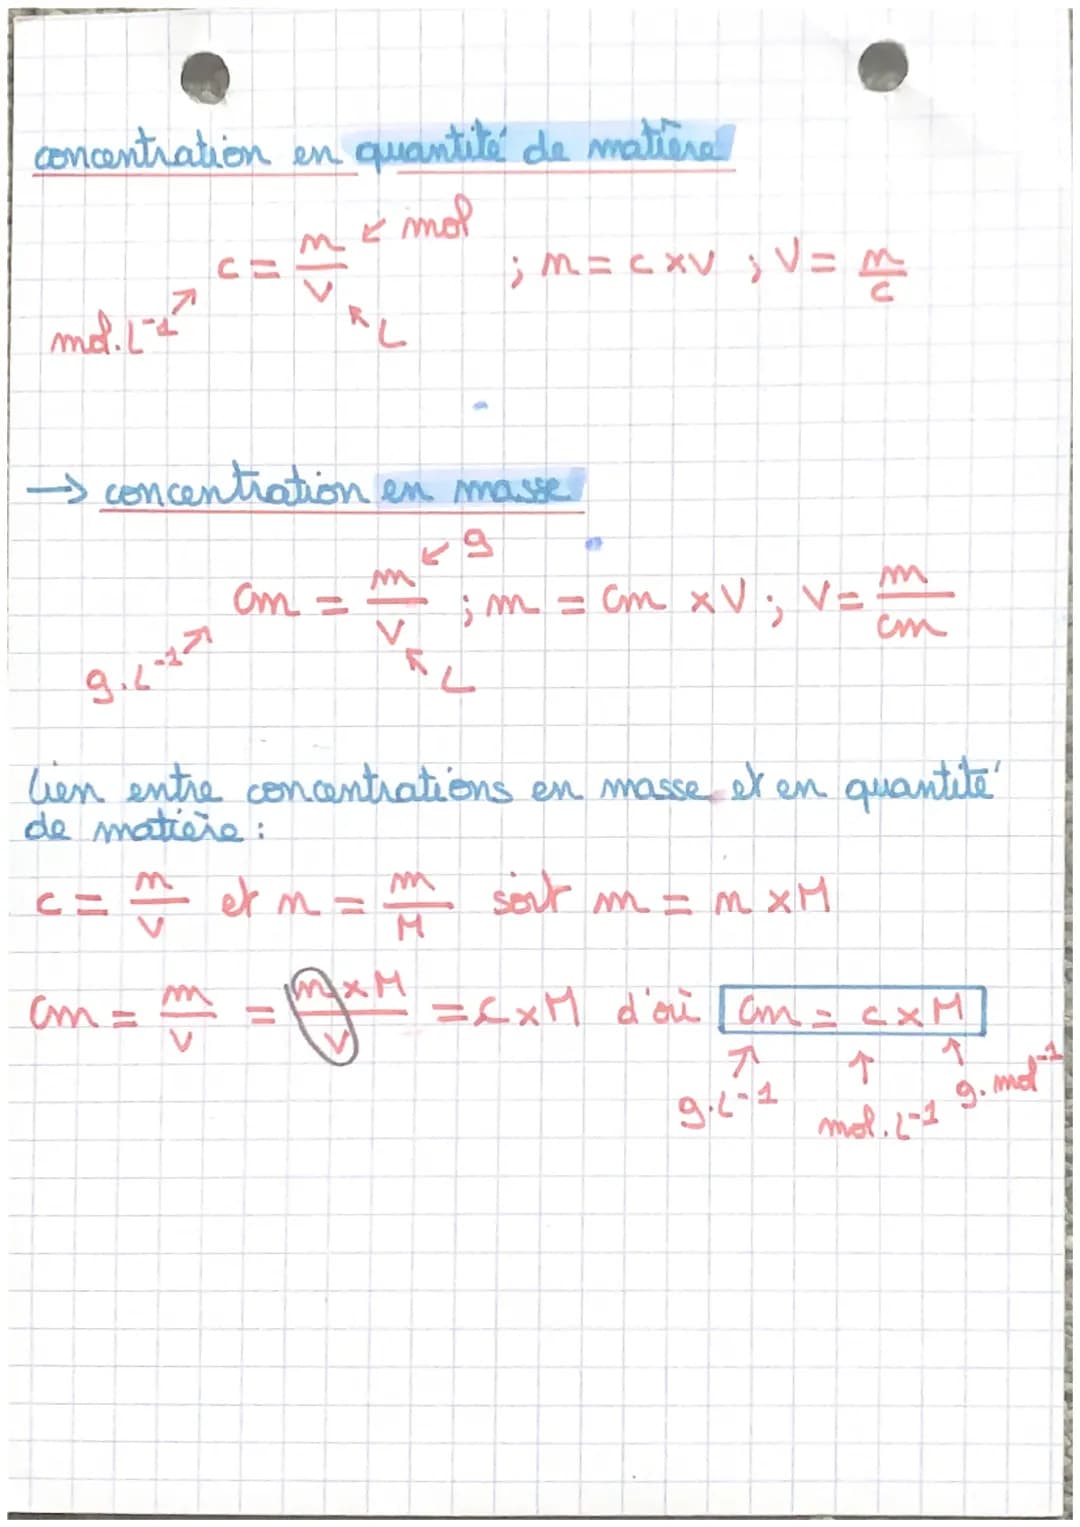 concentration en quantité de matière
c = n/V ← mol ; n = c x V ; V = n/c
mol.L⁻¹ ↗ ↖ L
→ concentration en masse
Cm = m/V ← g ; m = Cm x V ; V = m/cm
g.L⁻¹ ↗ ↖ L
lien entre concentrations en masse et en quantité
de matière :
c = n/V et n = m/M soit m = n x M
Cm = m/V = n x M/V = c x M d'où Cm = c x M
↗ ↑ ↑
g.L⁻¹ mol.L⁻¹ g.mol⁻¹